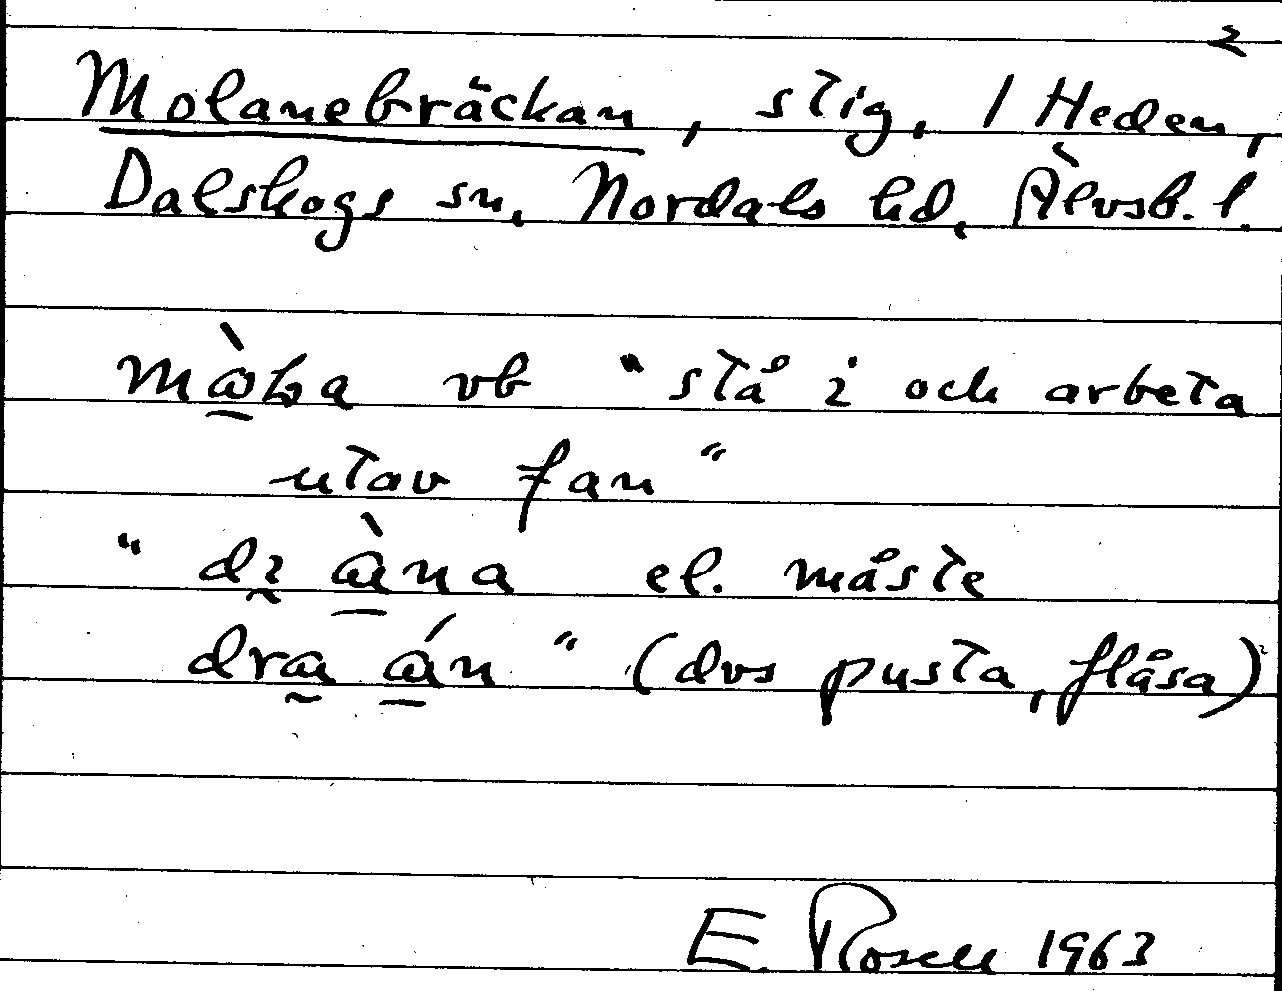 2
Molanebräckan, stig, 1 Heden,
Dalskogs sn, Nordals hd, Älvsb. l.
vb "stå i och arbeta
utav fan"
" àna el. måste
dra án" (dvs pusta, flåsa)
E. Rosell 1963